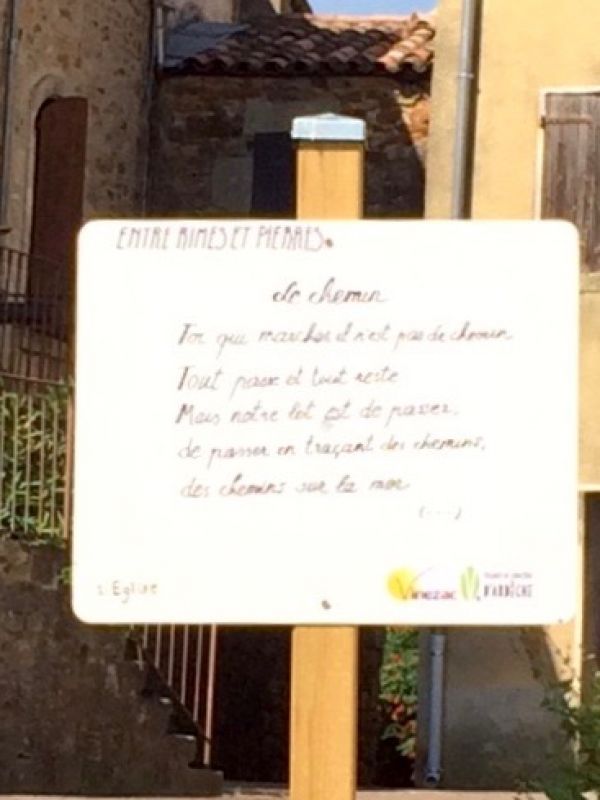 ENTRE RIMES ET PIERRES
Le chemin
Toi qui marches il n'est pas de chemin
Tout passe et tout reste
Mais notre lot est de passer,
de passer en traçant des chemins,
des chemins sur la mer
(....)
Eglise
Vinezac
D'ARDÈCHE